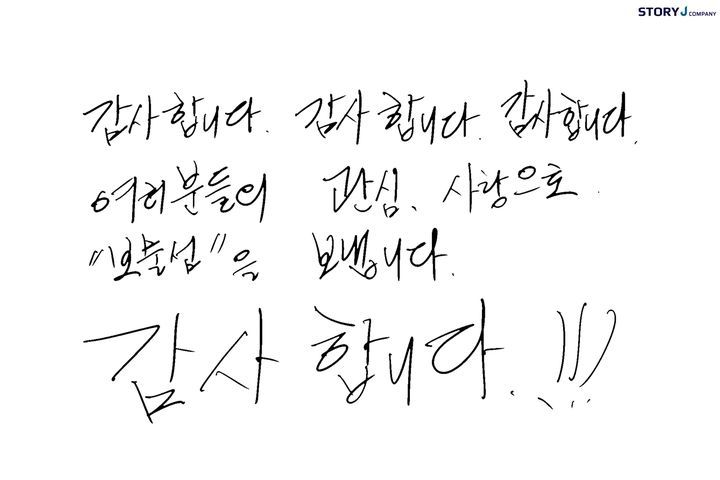 STORY J COMPANY
감사합니다. 감사합니다. 감사합니다.
여러분들의 관심, 사랑으로
"보물섬"을 보냅니다.
감사합니다. !!!